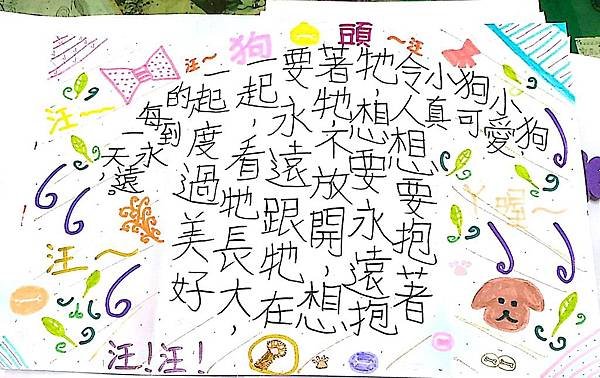 狗頭
~汪
汪~
小狗小狗
真可愛，
令人想要抱著
牠，想要永遠抱
著牠不放開，想
要永遠跟牠在
一起，看牠長大，
一起度過美好
的每一天，
到永遠。
汪~
汪~
汪!汪!